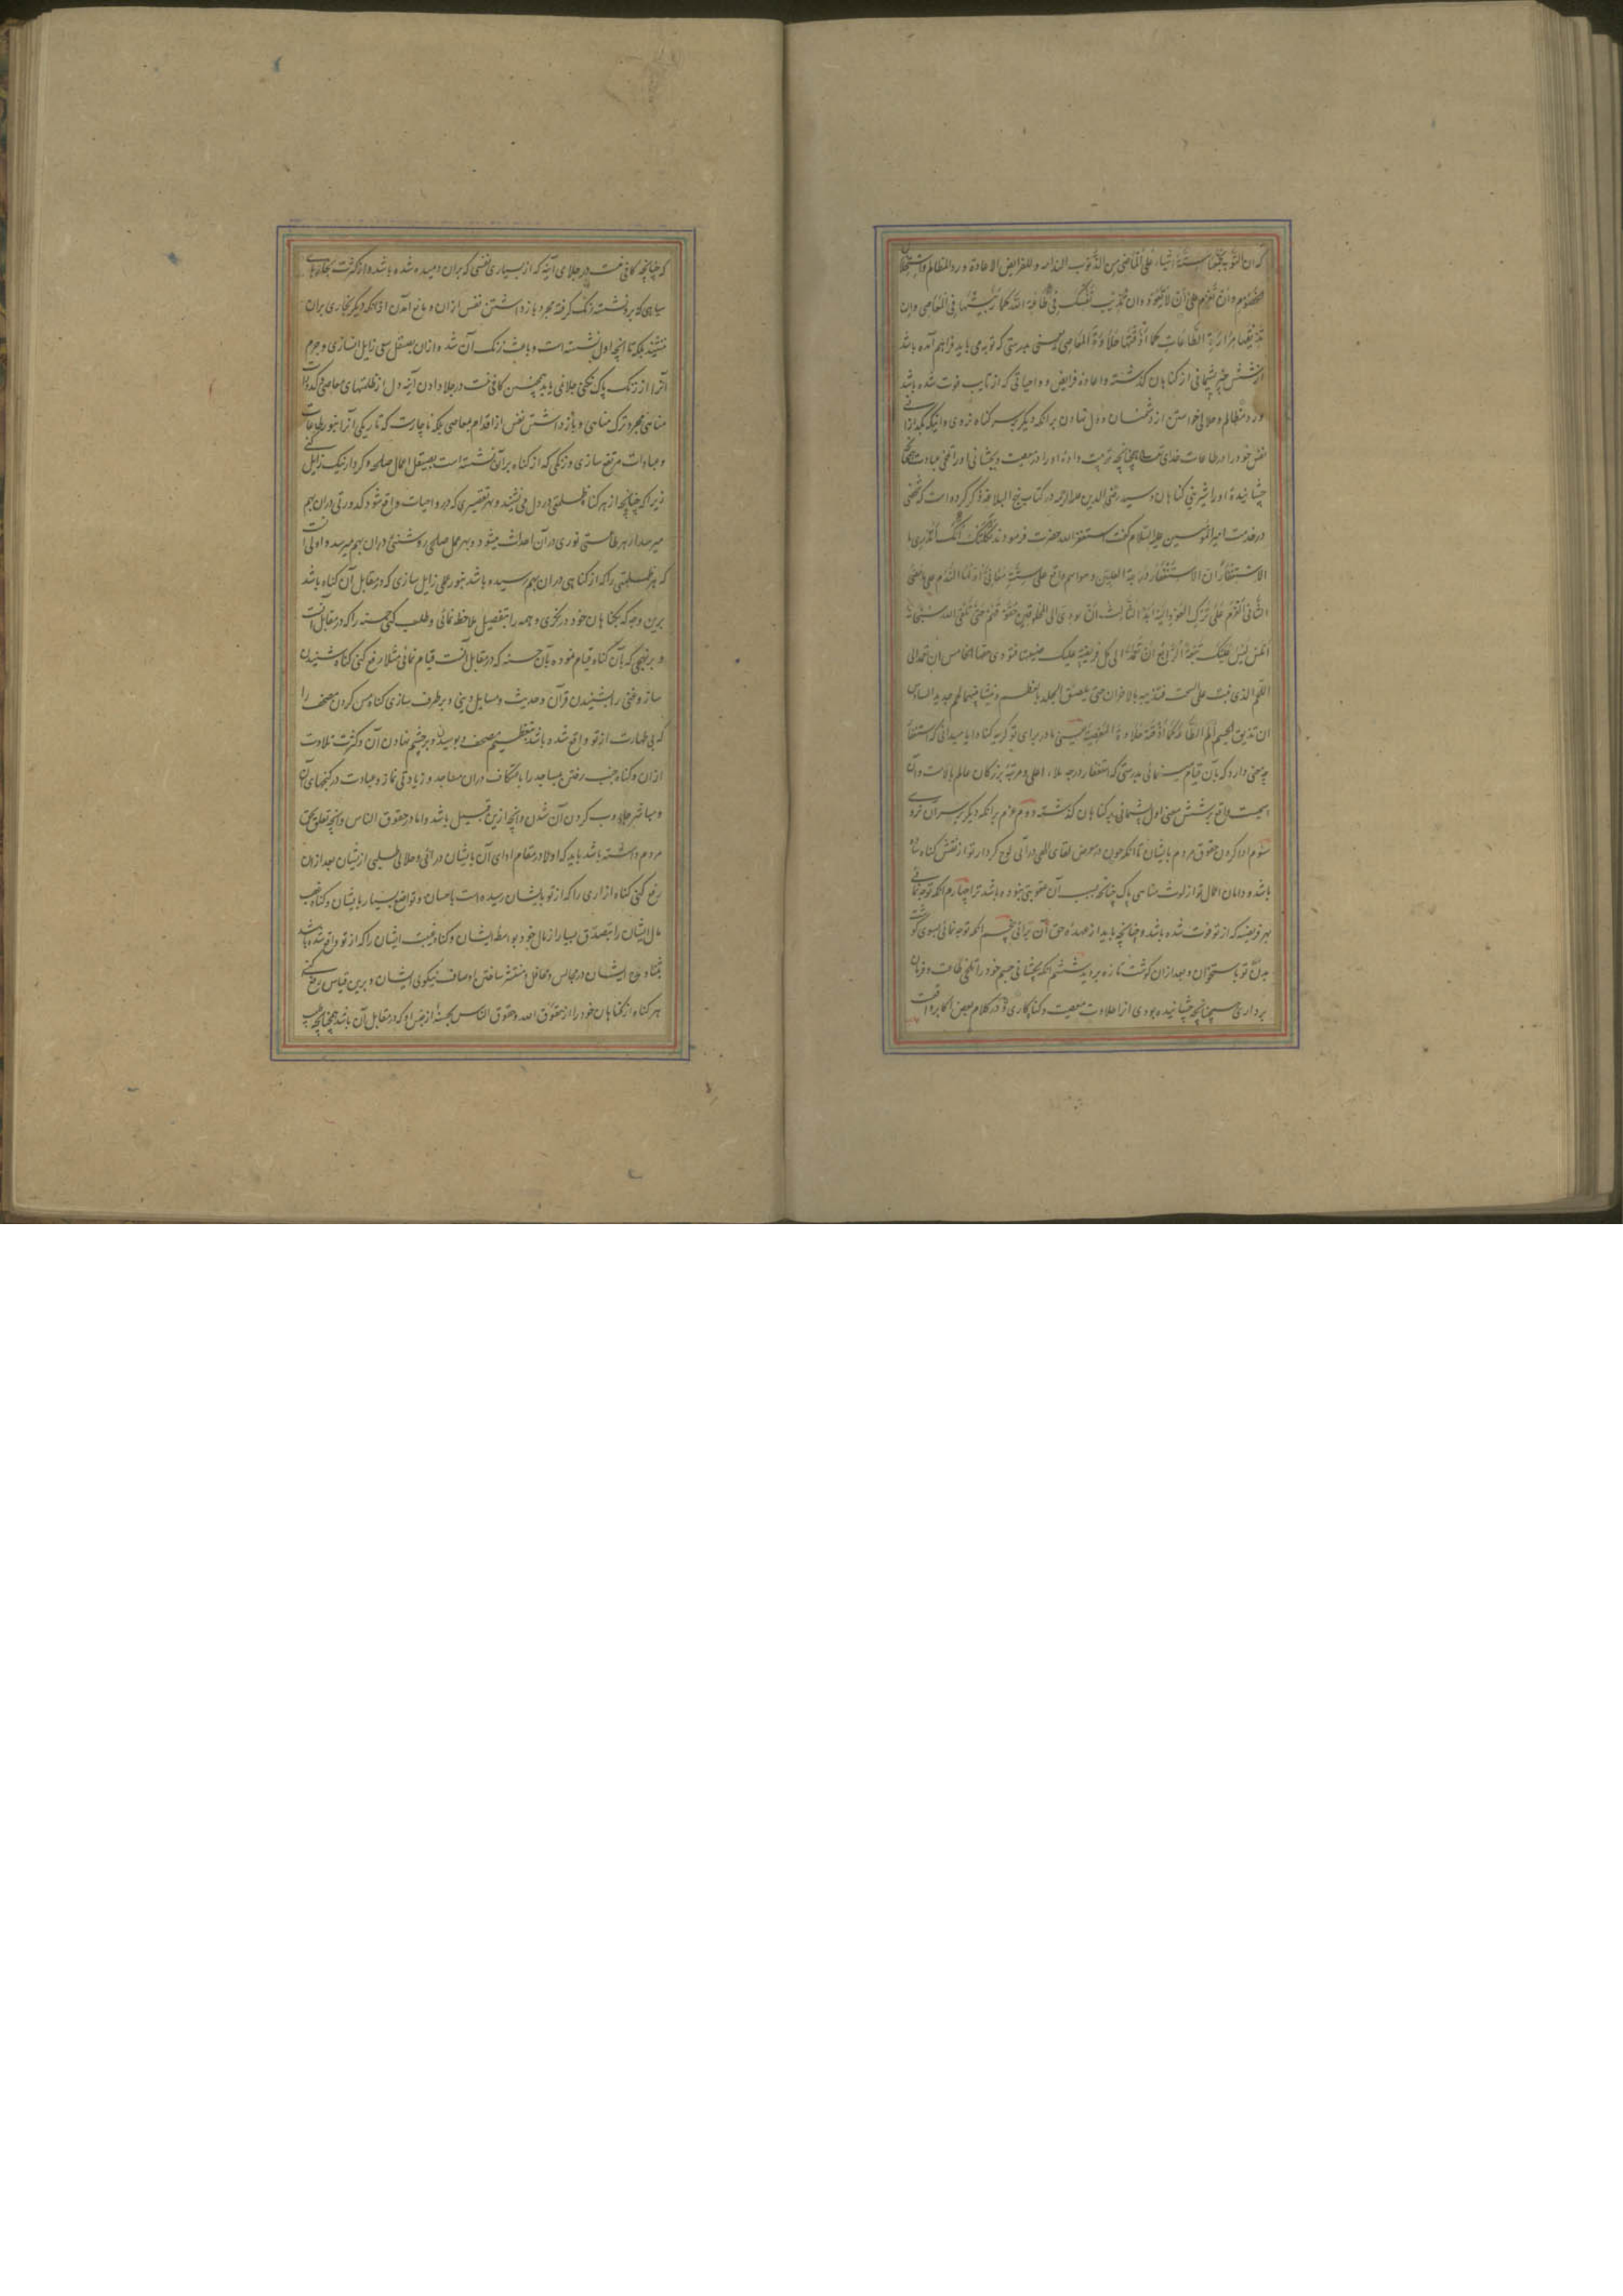 که ان التوبة یجمعها ستة اشیاء علی الماضی من الذنوب الندامة وللفرایض الاعادة ورد المظالم واستحلال
الخصوم وان تعزم علی ان لا تعود وان تذیب نفسک فی طاعة الله کما ربیتها فی المعاصی وان
تذیقها مرارة الطاعات کما اذقتها حلاوة المعاصی یعنی بدرستی که توبه می باید فراهم آمده باشد
از شش چیز پشیمانی از کناهان کذشته واعادهٔ فرایض و واجباتی که از تایب فوت شده باشد
ورد مظالم وحلالی خواستن از دشمنان ودل نهادن برانکه دیکر بسر کناه نروی وانکه بکدازانی
نفس خود را در طاعات خدای تعالی همچنانچه تربیت دادهٔ او را در معصیت وبچشانی او را تلخی عبادت همچنانچه
چشانیدهٔ او را شیرینی کناهان وسید رضی الدین علیه الرحمه در کتاب نهج البلاغه ذکر کرده است که شخصی
در خدمت امیر المؤمنین علیه السلام کفت استغفر الله حضرت فرمودند ثکلتک امک أتدری ما
الاستغفار ان الاستغفار درجة العلیین وهو اسم واقع علی ستة معان اولها الندم علی ما مضی
الثانی العزم علی ترک العود الیه ابدا الثالث ان تودی الی المخلوقین حقوقهم حتی تلقی الله سبحانه
املس لیس علیک تبعة الرابع ان تعمد الی کل فریضة علیک ضیعتها فتودی حقها الخامس ان تعمد الی
اللحم الذی نبت علی السحت فتذیبه بالاحزان حتی یلصق الجلد بالعظم وینشأ بینهما لحم جدید السادس
ان تذیق الجسم الم الطاعة کما اذقته حلاوة المعصیة یعنی مادر برای تو کریه کناد ایا میدانی که استغفار
چه معنی دارد که بآن قیام مینمائی بدرستی که استغفار درجه ملاء اعلی ومرتبهٔ بزرکان عالم بالاست وآن
اسمیست واقع بر شش معنی اول پشیمانی بر کناهان کذشته دوم عزم برانکه دیکر بسر آن نروی
سئوم ادا کردن حقوق مردم بایشان تا انکه چون در معرض لقای الهی درآئی لوح کردار تو از نقش کناه ساده
باشد و دامان اعمال تو از لوث مناهی پاک چنانچه بسبب آن عقوبتی نبوده باشد ترا چهارم انکه توجه نمائی
بهر فریضه که از تو فوت شده باشد وچنانچه باید از عهدهٔ حق آن برآئی پنجم انکه توجه نمائی بسوی کوشت
بدن تو باستخوان وبعد ازان کوشت تازه بروید ششم انکه بچشانی جسم خود را تلخی طاعت وفرمان
برداری همچنانچه چشانیده بودی از احلاوت معصیت وکناه کاری ودر کلام بعض اکابر واقعست
که چنانچه کافی نیست در جلای آینه که از بسیاری نفسی که بران دمیده شده باشد واز کثرت بخارهای
سیاهی که برو نشسته زنک کرفته مجرد باز داشتن نفس ازان ومانع آمدن از انکه دیکر بخاری بران
ننشیند بلکه تا انچه اول نشسته است وباعث زنک آن شده ازان بصیقل سعی زایل نسازی وجرم
آنرا از زنک پاک نکنی جلا نمی یابد همچنین کافی نیست در جلا دادن آینه دل از ظلمتهای معاصی وکدورات
مناهی مجرد ترک مناهی و باز داشتن نفس از اقدام بمعاصی بلکه ناچارست که تاریکی آنرا بنور طاعات
وعبادات مرتفع سازی وزنکی که از کناه برآن نشسته است بصیقل اعمال صالحه وکردار نیک زایل کنی
زیرا که چنانچه از هر کناه ظلمتی در دل می نشیند وبهر تقصیری که در واجبات واقع شود کدورتی دران بهم
میرسد از هر طاعتی نوری در آن احداث میشود وبهر عمل صالحی روشنئی دران بهم میرسد واولی آنست
که هر ظلمتی را که از کناهی دران بهم رسیده باشد بنور عملی زایل سازی که در مقابل آن کناه باشد
برین وجه که بکناهان خود در نکری وهمه را بتفصیل ملاحظه نمائی وطلب کنی حسنه را که در مقابل آنست
و بر نهجی که بآن کناه قیام نموده بآن حسنه که در مقابل آنست قیام نمائی مثلا رفع کنی کناه شنیدن
ساز وغنی را بشنیدن قرآن وحدیث ومسایل دینی وبرطرف سازی کناه مس کردن مصحف را
که بی طهارت از تو واقع شده باشد بتعظیم مصحف وبوسیدن وبر چشم نهادن آن وکثرت تلاوت
ازان وکناه جنب رفتن بمساجد را باعتکاف دران مساجد وزیادتی نماز وعبادت در کنجهای آن
ومباشر جاروب کردن آن شدن وانچه ازین قبیل باشد واما در حقوق الناس وانچه تعلق بحق
مردم داشته باشد باید که اولا در مقام ادای آن بایشان درائی وحلالی طلبی ازیشان بعد ازان
رفع کنی کناه ازاری را که از تو بایشان رسیده است باحسان وتواضع بسیار بایشان وکناه غصب
مال ایشان را بتصدق بسیار از مال خود بواسطه ایشان وکناه غیبت ایشان را که از تو واقع شده باشد
بثنا ومدح ایشان در مجالس ومحافل ومنتشر ساختن اوصاف نیکوی ایشان وبرین قیاس رفع کنی
هر کناه از کناهان خود را از حقوق الله وحقوق الناس بحسنهٔ از جنس او که در مقابل آن باشد همچنانچه طبیب